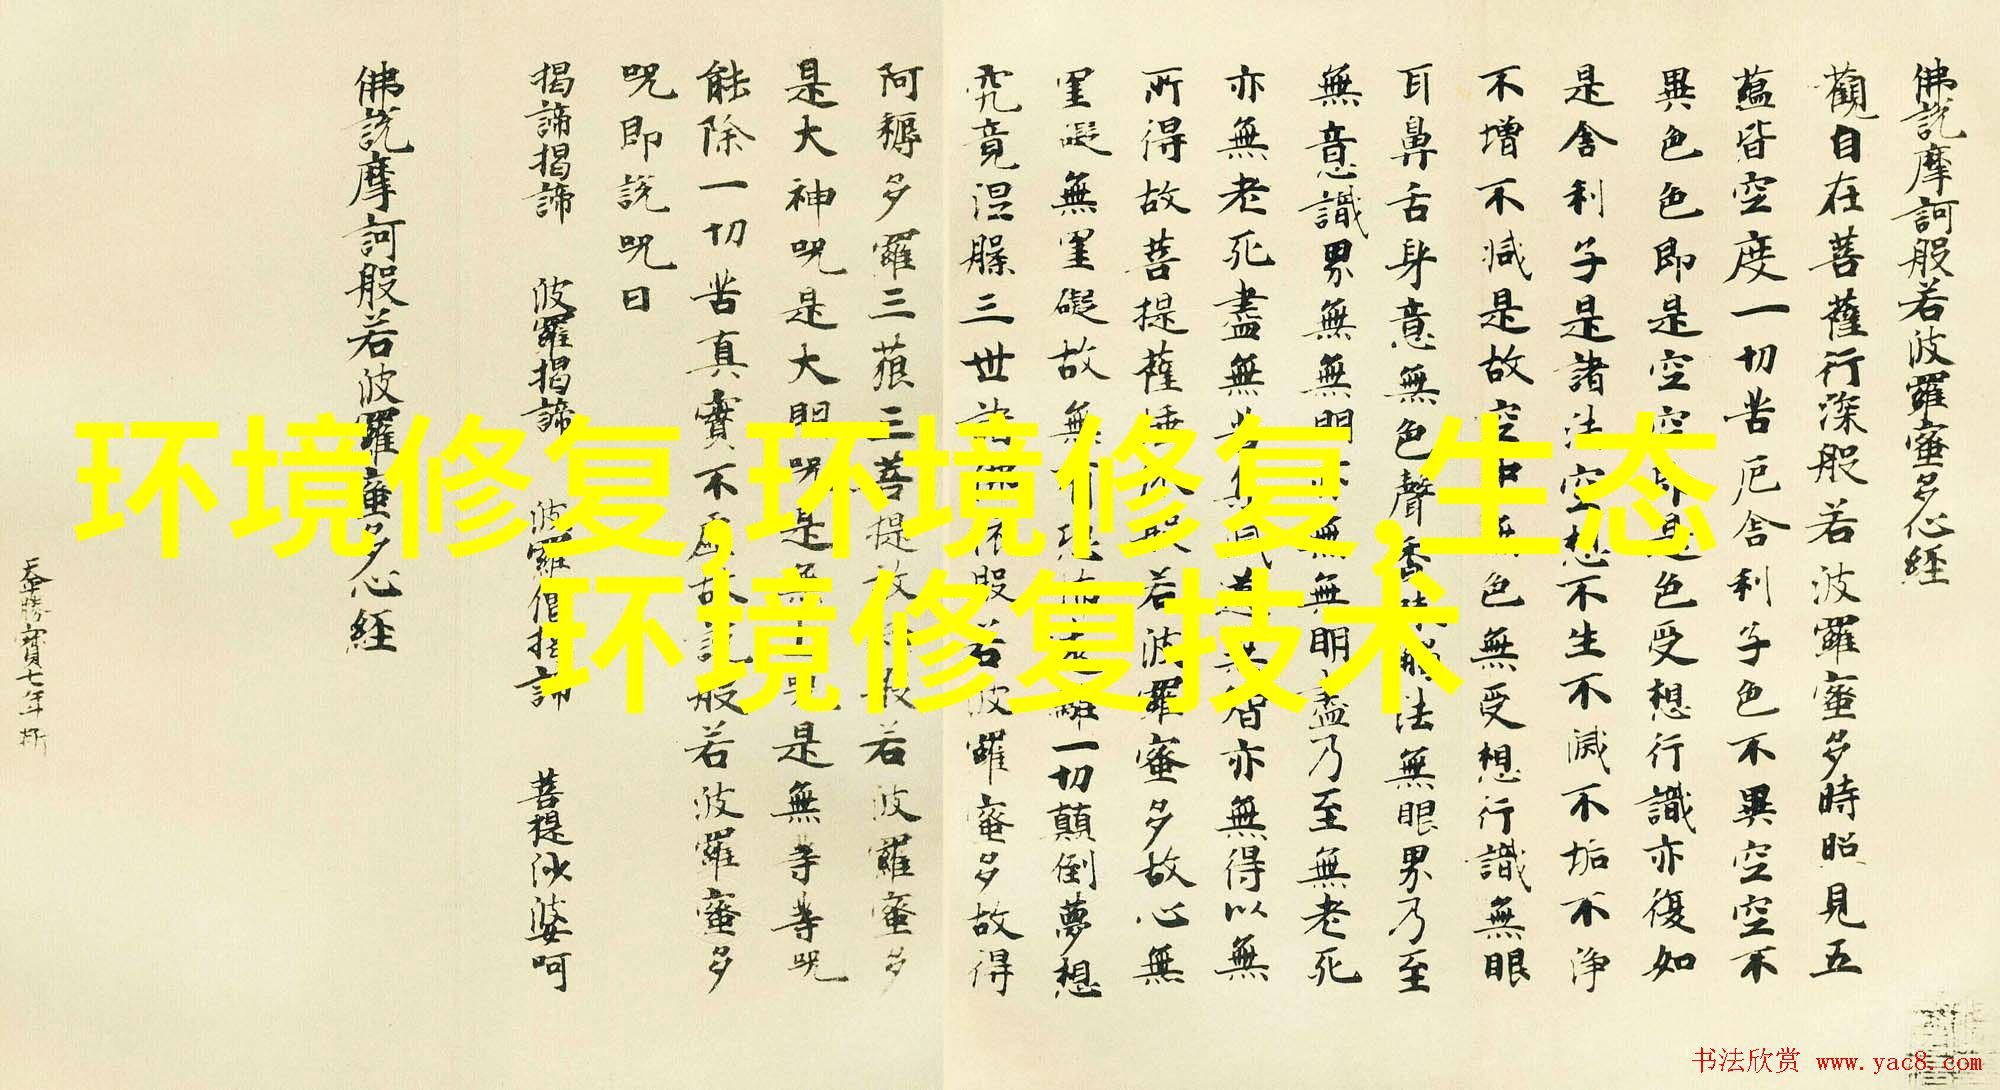 佛說摩訶般若波羅蜜多心經
觀自在菩薩行深般若波羅蜜多時照見五
蘊皆空度一切苦厄舍利子色不異空空不
異色色即是空空即是色受想行識亦復如
是舍利子是諸法空想不生不滅不垢不淨
不增不減是故空中無色無受想行識無眼
耳鼻舌身意無色聲香味觸法無眼界乃至
無意識界無無明亦無無明盡乃至無老死
亦無老死盡無苦集滅道無智亦無得以無
所得故菩提薩埵依般若波羅蜜多故心無
罣礙無罣礙故無有恐怖遠離一切顛倒夢想
究竟涅槃三世諸佛依般若波羅蜜多故得
阿耨多羅三藐三菩提故知般若波羅蜜多
是大神咒是大明咒是無上咒是無等等咒
能除一切苦真實不虛故說般若波羅蜜多
咒即說咒曰
揭諦揭諦 波羅揭諦 波羅僧揭諦 菩提沙婆呵
佛說摩訶般若波羅蜜多心經
天寶七年
环境修复,环境修复,生态
环境修复技术
书法欣赏 www.yac8.com